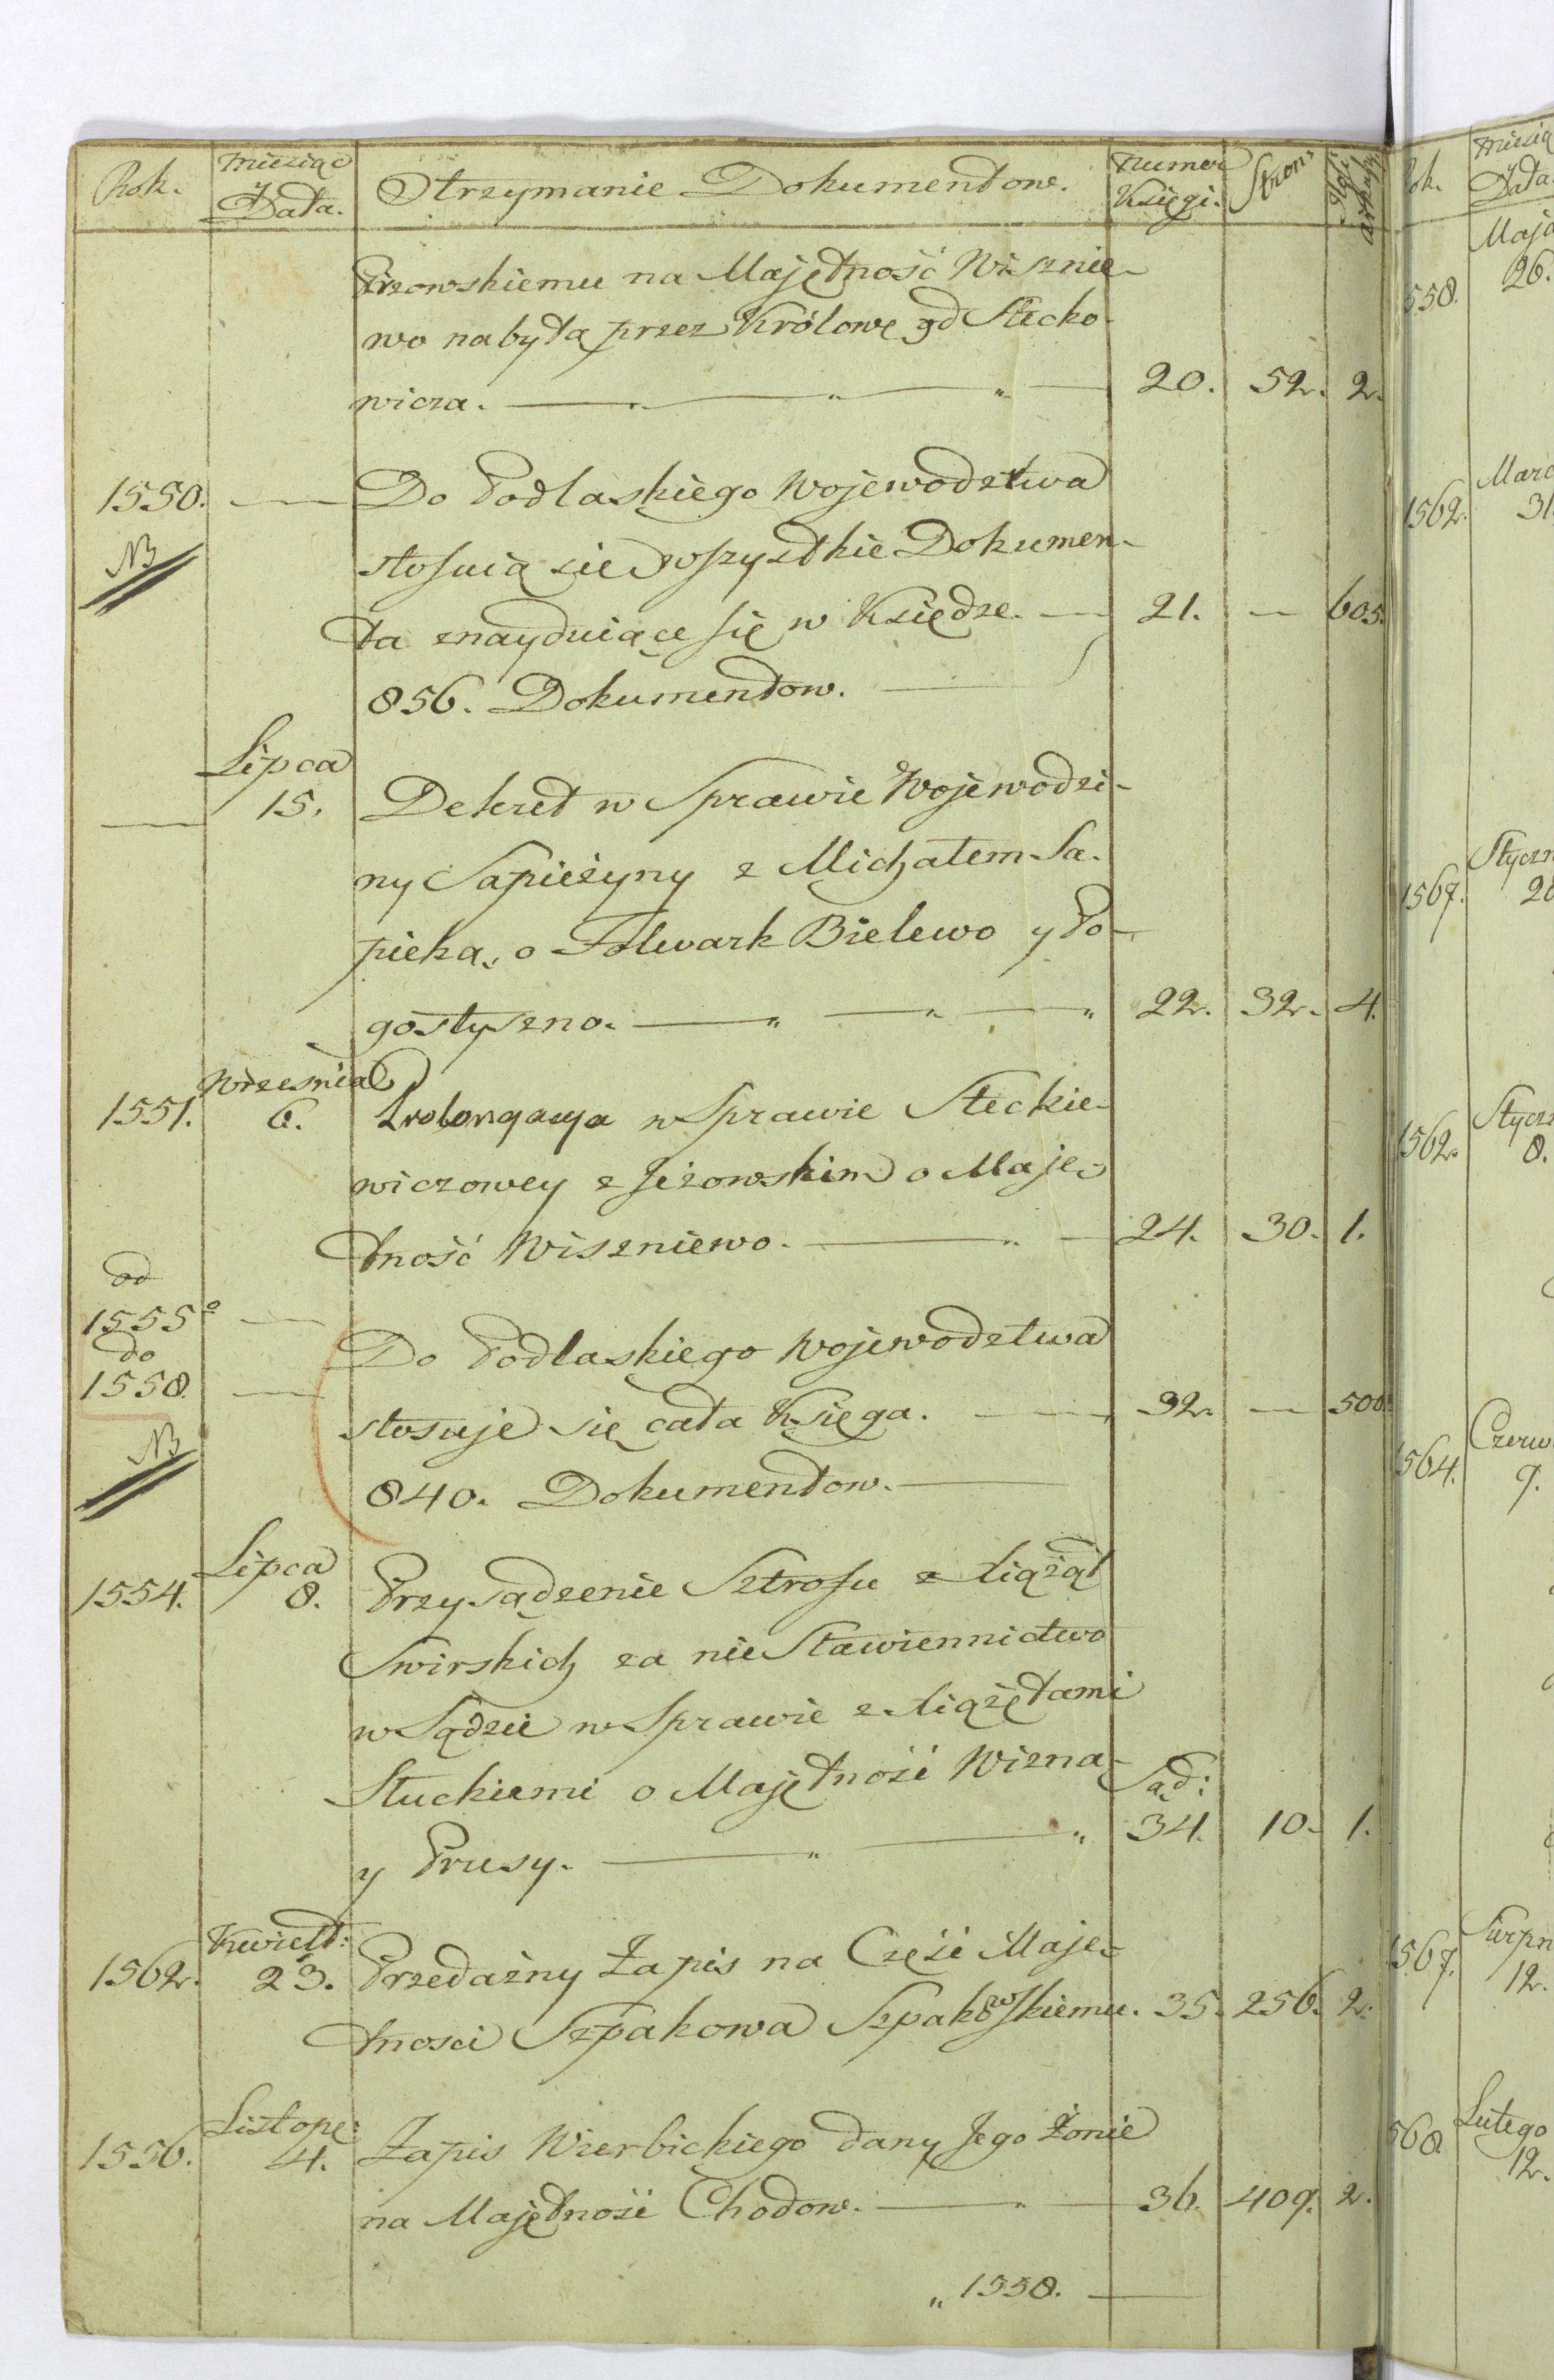 Rok. Miesiąc Data. Otrzymanie Dokumentow. Numer Księgi. Stron: Ilość arkuszy
Irzowskiemu na Majętność Wisznie-
wo nabytą przez Królowę od Stecko-
wicza. 20. 52. 2.
1550. Do Podlaskiego Wojewodztwa
NB stosuią się wszystkie Dokumen-
ta znayduiące się w Księdze. 21. — 605.
856. Dokumentow.
Lipca
15. Dekret w Sprawie Wojewodzi-
ny Sapieżyny z Michałem Sa-
pieha, o Folwark Bielewo y Po-
gostyszno. 22. 32. 4.
Wrzesnia
1551. 6. Prolongacya w Sprawie Steckie-
wiczowey z Jeżowskim o Maję-
tność Wiszniewo. 24. 30. 1.
od
1555º
do Do Podlaskiego Wojewodztwa
1558.
stosuje się cała Księga. 32. — 500.
NB
840. Dokumentow.
Lipca
1554. 8. Przysądzenie Sztrofu z Xiążąt
Swirskich za nie Stawiennictwo
w Sądzie w Sprawie z Xiążętami
Słuckiemi o Majętność Wizna Sąd:
y Prusy. 34. 10. 1.
Kwiet:
1562. 23. Przedażny Zapis na Częśc Maję-
tnosci Szpakowa Szpakowskiemu. 35. 256. 2.
Listopa:
1556. 4. Zapis Wierbickiego dany Jego Żonie
na Majętność Chodow. 36. 409. 2.
„ 1558.
Rok. Miesią
Data.
Maja
558. 26.
Marc
1562. 31.
Stycz
1567. 20
Stycz
1562. 8.
Czerw
1564. 9.
Sierpn
1567. 12.
Lutego
568. 12.